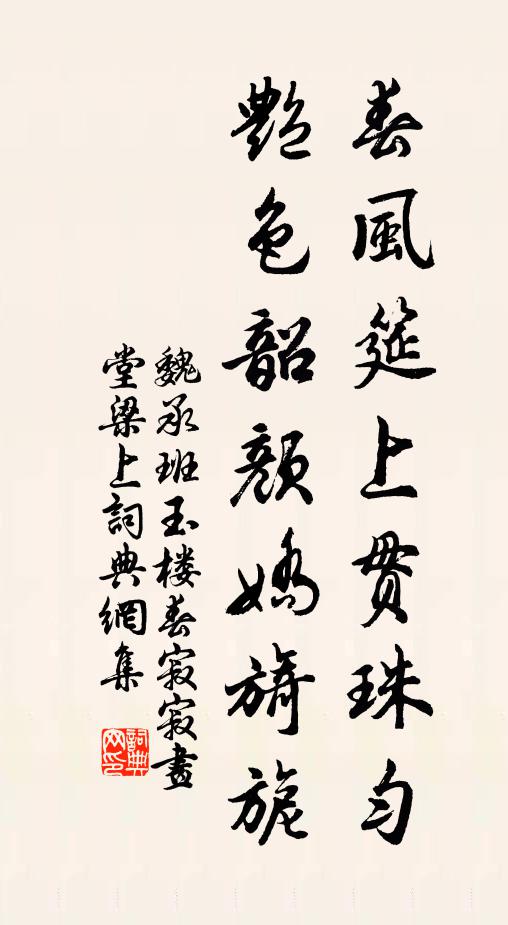 春風筵上貫珠勻
艷色韶顏嬌旖旎
魏承班玉楼春寂寂畫
堂梁上詞典網集
詞典網印